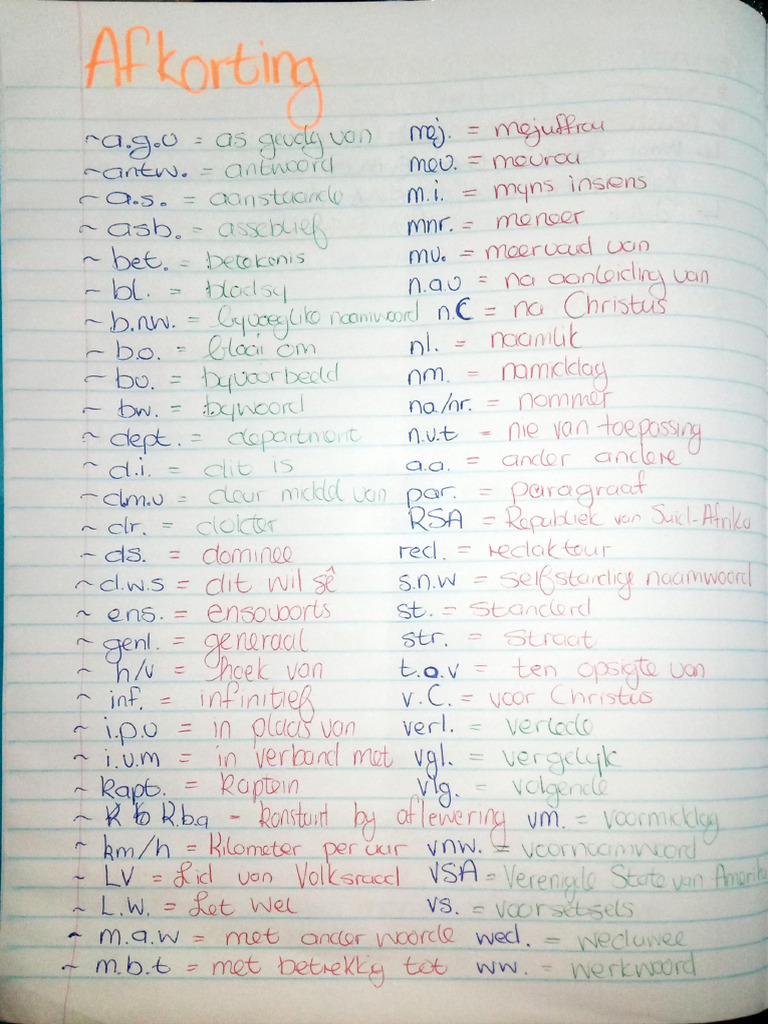 Afkorting
~a.g.v = as gevolg van
~antw. = antwoord
~ a.s. = aanstaande
~ asb. = asseblief
~ bet. = betekenis
~ bl. = bladsy
~ b.nw. = byvoeglike naamwoord
~ b.o. = blaai om
~ bv. = byvoorbeeld
~ bw. = bywoord
~ dept. = department
~ d.i. = dit is
~d.m.v = deur middel van
~ dr. = dokter
~ ds. = dominee
~ d.w.s = dit wil sê
~ ens. = ensovoorts
~ genl. = generaal
~ h/v = hoek van
~ inf. = infinitief
~ i.p.v = in plaas van
~ i.v.m = in verband met
~ kapt. = kaptein
~ k.b.a - kontant by aflewering
~ km/h = kilometer per uur
~ LV = Lid van Volksraad
~ L.W. = Let wel
~ m.a.w = met ander woorde
~ m.b.t = met betrekkig tot
mej. = mejuffrou
mev. = mevrou
m.i. = myns insiens
mnr. = meneer
mv. = meervoud van
n.a.v = na aanleiding van
n.C = na Christus
nl. = naamlik
nm. = namiddag
no./nr. = nommer
n.v.t = nie van toepassing
a.a. = ander andere
par. = paragraaf
RSA = Republiek van Suid-Afrika
red. = redakteur
s.n.w = selfstandige naamwoord
st. = standerd
str. = straat
t.o.v = ten opsigte van
v.C. = voor Christus
verl. = verlede
vgl. = vergelyk
vlg. = volgende
vm. = voormiddag
vnw. = voornaamwoord
VSA = Verenigde State van Amerika
vs. = voorsetsels
wed. = weduwee
ww. = werkwoord